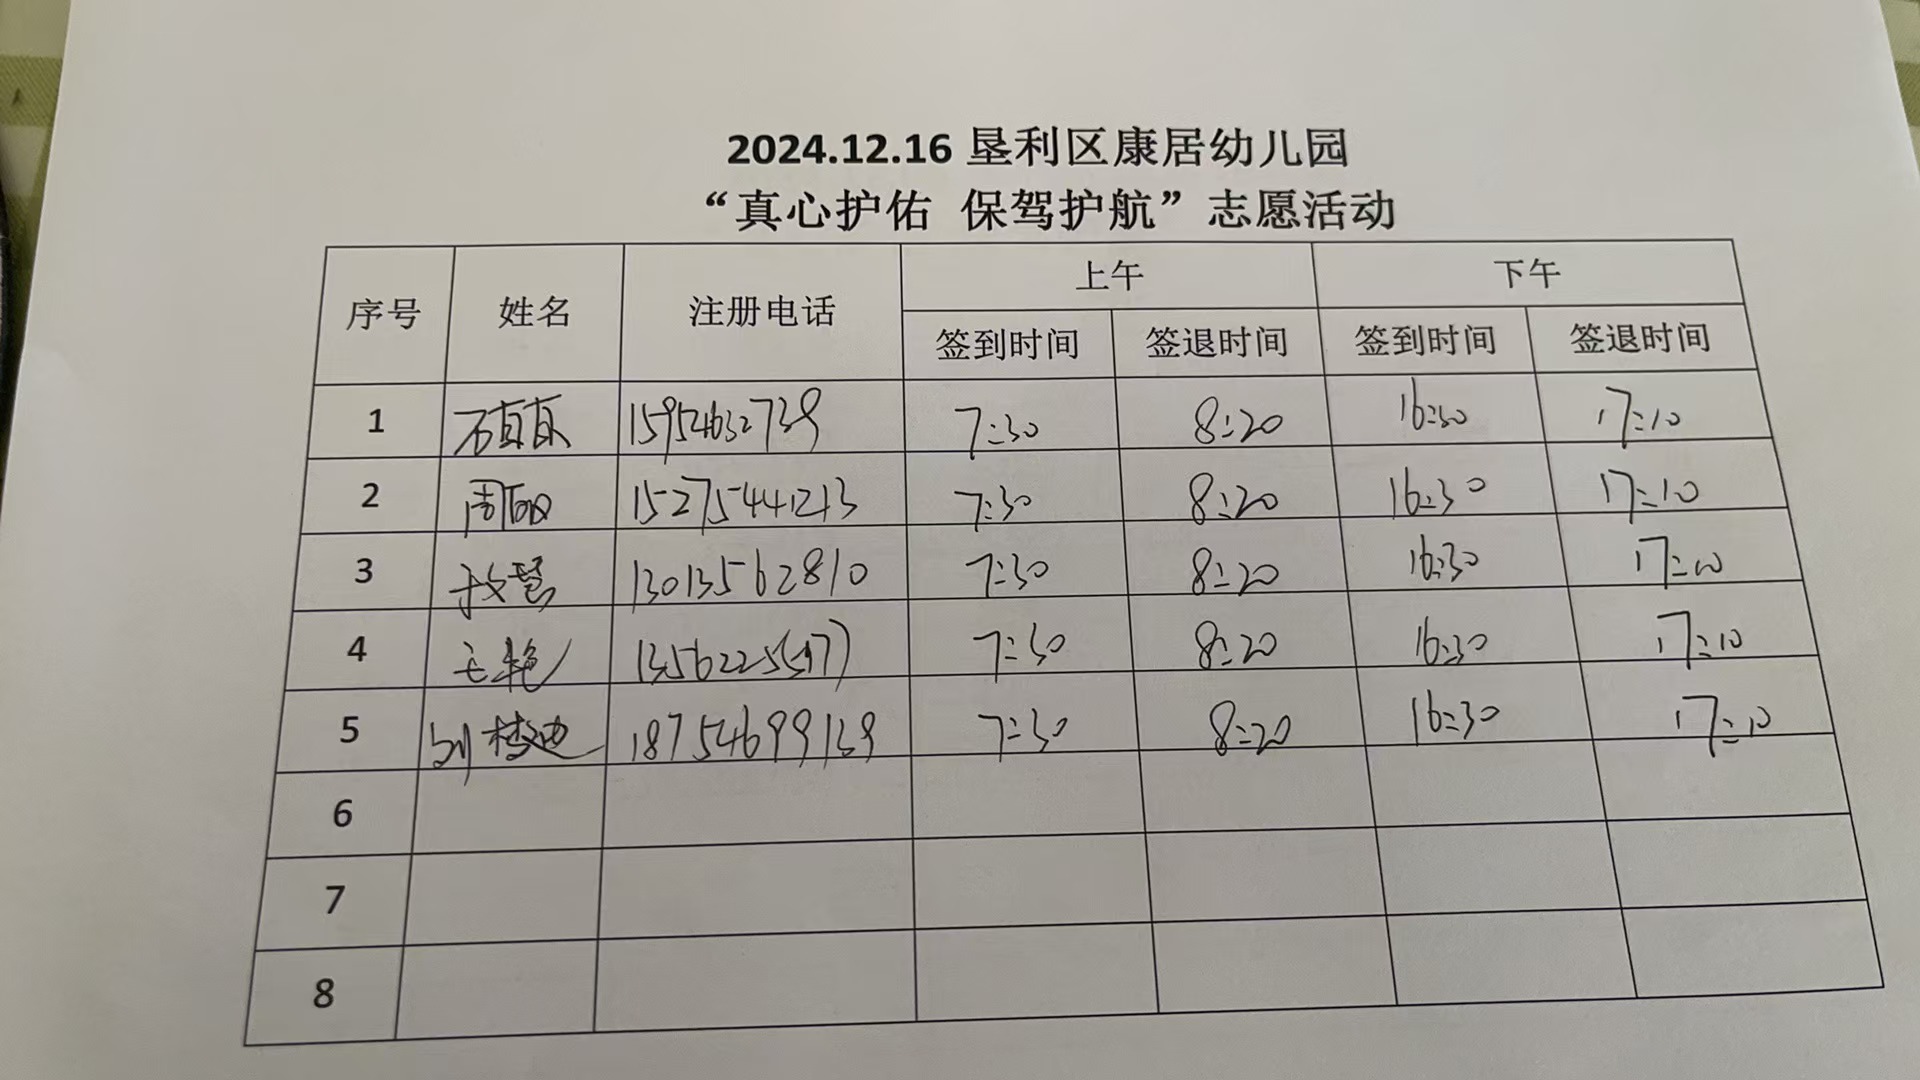 2024.12.16 垦利区康居幼儿园
“真心护佑 保驾护航”志愿活动
序号 姓名 注册电话 上午 下午
签到时间 签退时间 签到时间 签退时间
1 15954632739 7:30 8:20 16:30 17:10
2 15275441213 7:30 8:20 16:30 17:10
3 13013562810 7:30 8:20 16:30 17:10
4 王艳 7:30 8:20 16:30 17:10
5 18754699139 7:30 8:20 16:30 17:10
6
7
8